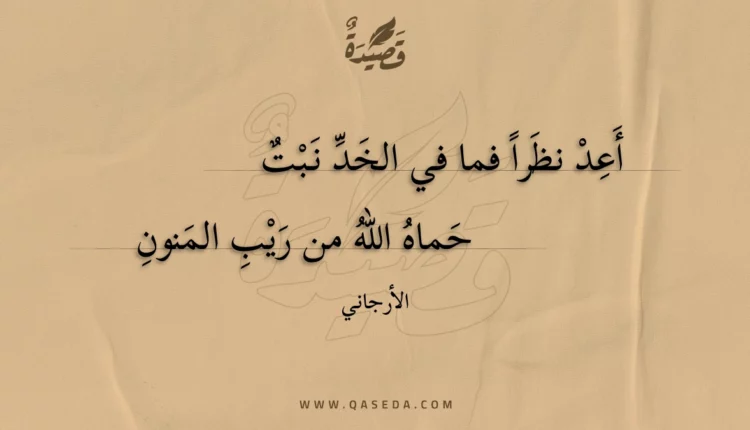 قَصِيْدَةٌ
أَعِدْ نظَراً فما في الخَدِّ نَبْتٌ
حَماهُ اللهُ من رَيْبِ المَنونِ
الأرجاني
WWW.QASEDA.COM